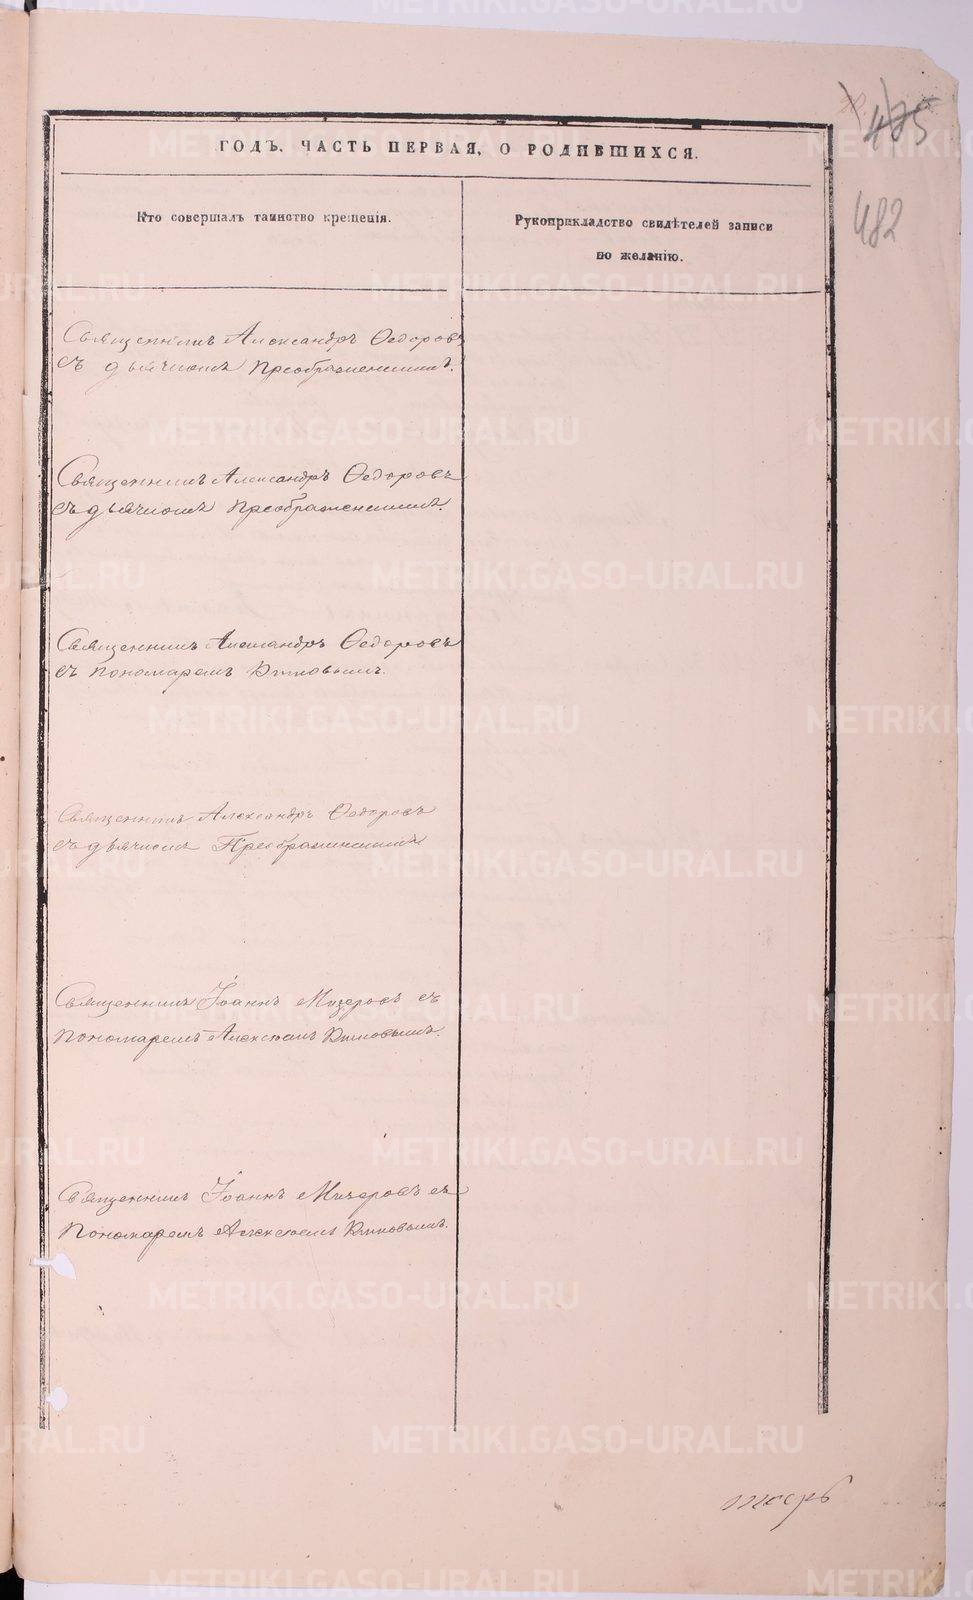 475
482
ГОДЪ. ЧАСТЬ ПЕРВАЯ, О РОДИВШИХСЯ.
Кто совершалъ таинство крещенія.
Рукоприкладство свидѣтелей записи
по желанію.
Священникъ Александръ Ѳедоровъ
съ дьячкомъ Преображенскимъ.
Священникъ Александръ Ѳедоровъ
съ дьячкомъ Преображенскимъ.
Священникъ Александръ Ѳедоровъ
съ пономаремъ
Священникъ Александръ Ѳедоровъ
съ дьячкомъ Преображенскимъ
Священникъ Іоаннъ Мизеровъ съ
Пономаремъ Алексѣемъ
Священникъ Іоаннъ Мизеровъ съ
Пономаремъ Алексѣемъ
METRIKI.GASO-URAL.RU